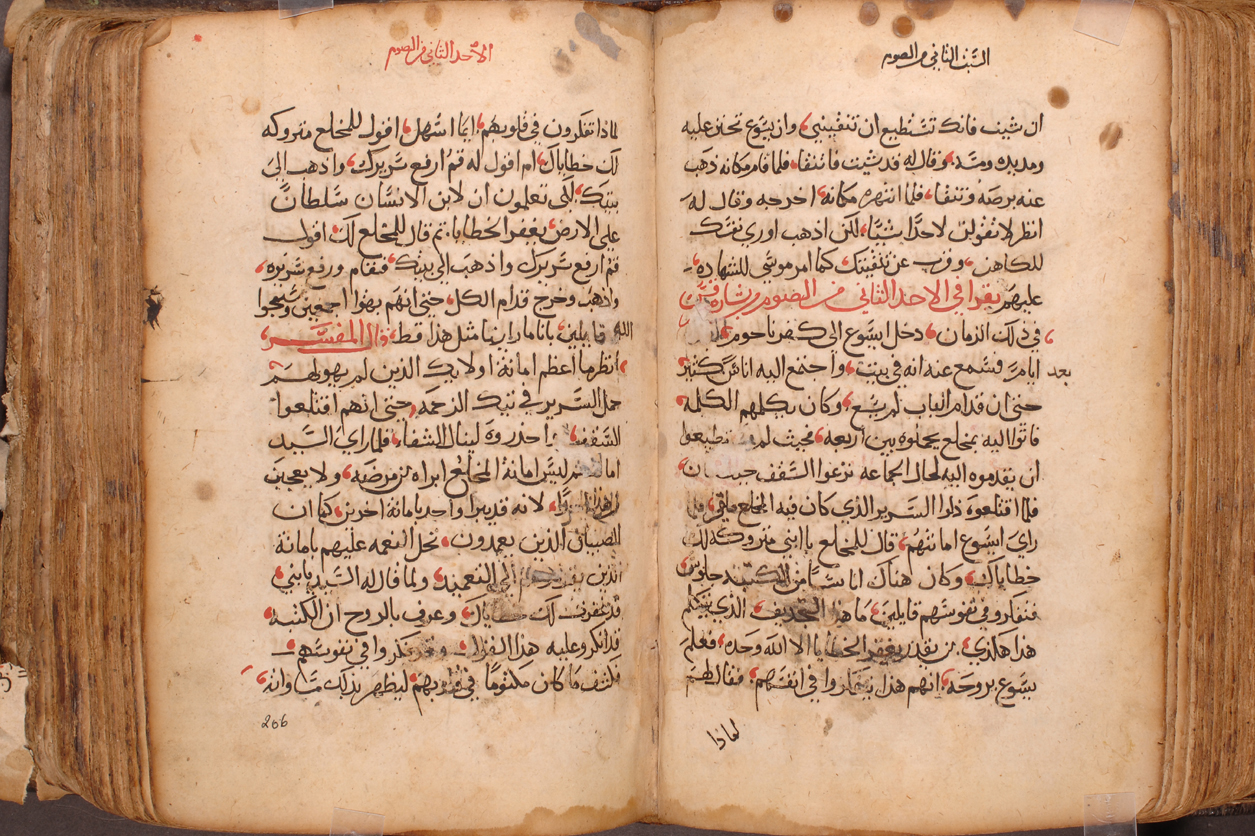 السبت الثاني من الصوم
ان شيت فانك تستطيع ان تنقيني وان يسوع تحنن عليه
ومد يده ومسه وقال له قد شيت فاتنقا فلما قام مكانه ذهب
عنه برصه وتنقا فلما انتهره مكانه اخرجه وقال له
انظر لا تقولن لاحدا شيا لكن اذهب اوري نفسك
للكاهن وقرب عن تنقيتك كما امر موسى للشهاده
عليهم يقرا في الاحد الثاني من الصوم بشارة
في ذلك الزمان دخل يسوع الى كفرناحوم
بعد ايام فسمع عنه انه في بيت واجتمع اليه اناس كثير
حتى ان قدام الباب لم يسع وكان يكلمهم الكلمه
فاتوا اليه بمخلع يحملوه بين اربعه فحيث لم
ان يقدموه اليه لحال الجماعه نزعوا السقف حيث كان
فلما اقتلعوه دلوا السرير الذي كان فيه المخلع
راى يسوع امانتهم قال للمخلع يا ابني متروكه لك
خطاياك وكان هناك اناسا من الكتبه جلوس
فتفكروا في نفوسهم قايلين ما هذا التجديف الذي يتكلم
هذا هكذى من يقدر يغفر الخطايا الا الله وحده فعلم
يسوع بروحه انهم هذا يفكروا في انفسهم فقال لهم
لماذا
الاحد الثاني من الصوم
لماذا تفكرون في قلوبكم ايما اسهل اقول للمخلع متروكه
لك خطاياك ام اقول له قم ارفع سريرك واذهب الى
بيتك لكي تعلمون ان لابن الانسان سلطانا
على الارض يغفر الخطايا ثم قال للمخلع لك اقول
قم ارفع سريرك واذهب الى بيتك فقام ورفع سريره
واذهب وخرج قدام الكل حتى انهم بهتوا اجمعين وسبحوا
الله قايلين باننا ما راينا مثل هذا قط قال المفسر
انظر ما اعظم امانة اولايك الذين لم يهولهم
حمل السرير في تيك الزحمه حتى انهم اقتلعوا
السقف واحدروه لينال الشفاء فلما راى السيد
امانتهم ليس امانة المخلع ابراه من مرضه ولا يعجبن
لانه قد يبرا واحد بامانة اخرين كما ان
الصبيان الذين يعمدون تحل النعمه عليهم بامانة
الذين الى التعميد ولما قال له السيد يا بني
قد غفرت لك خطاياك وعرف بالروح ان الكتبه
قد انكروا عليه هذا القول وفكروا في نفوسهم
فكشف ما كان مكتوما في قلوبهم ليظهر بذلك
206